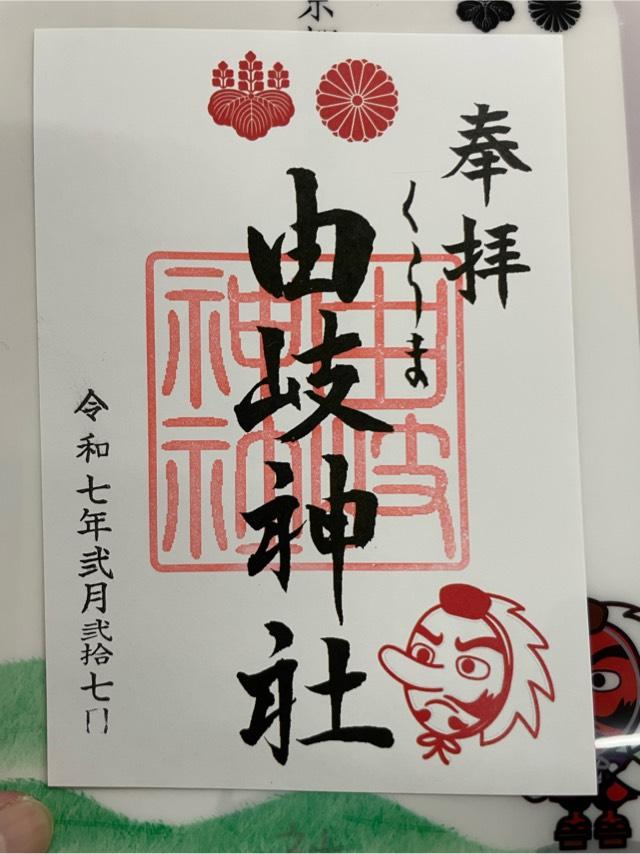 奉拝
くらま
由岐神社
由岐神社
令和七年弐月弐拾七日